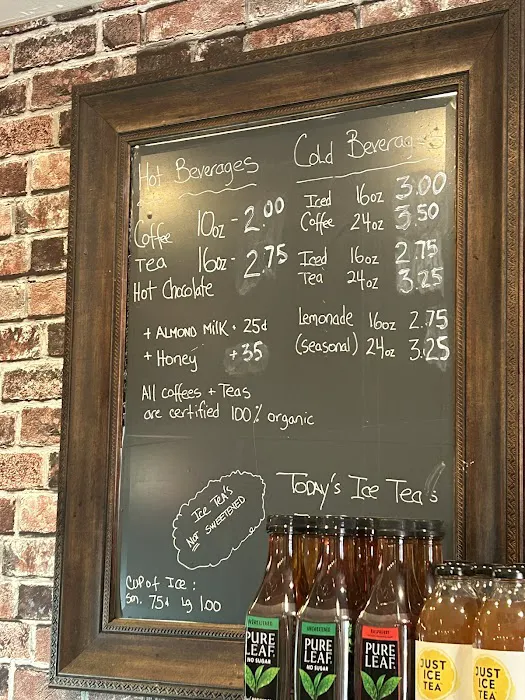 Hot Beverages
Coffee 10oz - 2.00
Tea 16oz - 2.75
Hot Chocolate
+ ALMOND MILK • 25¢
+ Honey +35
All coffees + Teas
are certified 100% organic
Cold Beverages
Iced 16oz 3.00
Coffee 24oz 3.50
Iced 16oz 2.75
Tea 24oz 3.25
Lemonade 16oz 2.75
(seasonal) 24oz 3.25
Today's Ice Tea's
ICE TEA'S
NOT SWEETENED
Cup of Ice :
Sm. 75¢ Lg 1.00
UNSWEETENED
PURE
LEAF
NO SUGAR
UNSWEETENED
PURE
LEAF
NO SUGAR
RASPBERRY
PURE
LEAF
JUST
ICE
TEA
JUST
ICE
TEA